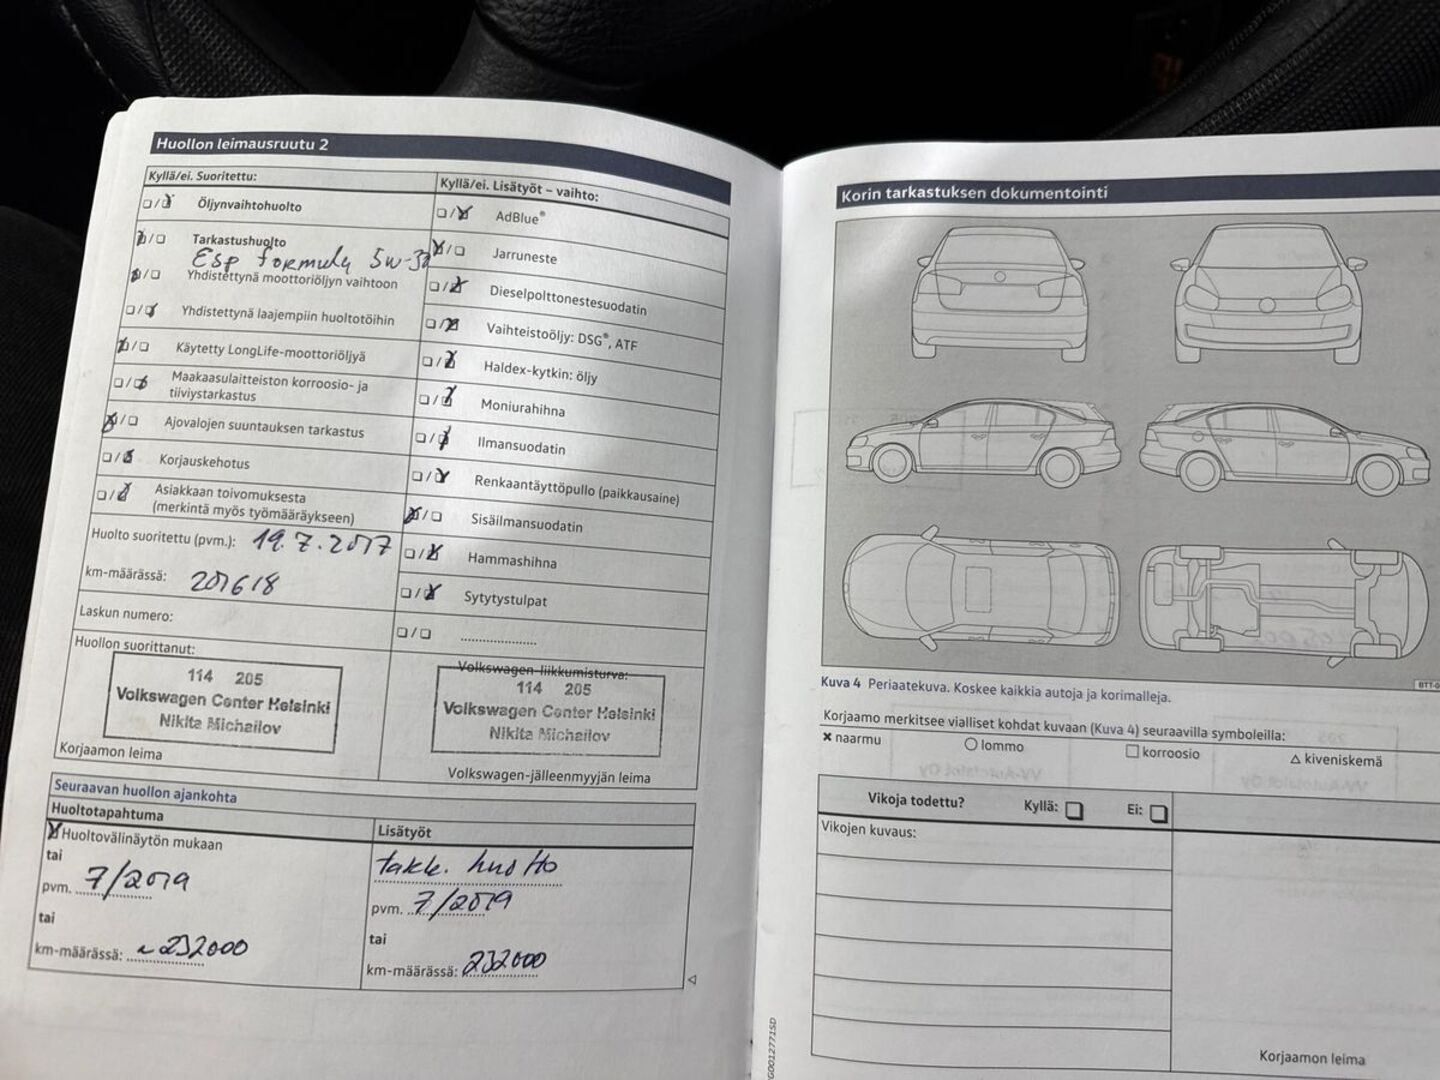 Huollon leimausruutu 2
Kyllä/ei. Suoritettu:
Öljynvaihtohuolto
Tarkastushuolto
Esp formula 5w-30
Yhdistettynä moottoriöljyn vaihtoon
Yhdistettynä laajempiin huoltotöihin
Käytetty LongLife-moottoriöljyä
Maakaasulaitteiston korroosio- ja
tiiviystarkastus
Ajovalojen suuntauksen tarkastus
Korjauskehotus
Asiakkaan toivomuksesta
(merkintä myös työmääräykseen)
Huolto suoritettu (pvm.): 19.7.2017
km-määrässä: 201618
Laskun numero:
Huollon suorittanut:
114 205
Volkswagen Center Helsinki
Nikita Michailov
Korjaamon leima
Kyllä/ei. Lisätyöt – vaihto:
AdBlue®
Jarruneste
Dieselpolttonestesuodatin
Vaihteistoöljy: DSG®, ATF
Haldex-kytkin: öljy
Moniurahihna
Ilmansuodatin
Renkaantäyttöpullo (paikkausaine)
Sisäilmansuodatin
Hammashihna
Sytytystulpat
Volkswagen-liikkumisturva:
114 205
Volkswagen Center Helsinki
Nikita Michailov
Volkswagen-jälleenmyyjän leima
Seuraavan huollon ajankohta
Huoltotapahtuma
Huoltovälinäytön mukaan
tai
pvm. 7/2019
tai
km-määrässä: ~232000
Lisätyöt
takk. huolto
pvm. 7/2019
tai
km-määrässä: 232000
Korin tarkastuksen dokumentointi
Kuva 4 Periaatekuva. Koskee kaikkia autoja ja korimalleja.
Korjaamo merkitsee vialliset kohdat kuvaan (Kuva 4) seuraavilla symboleilla:
naarmu
lommo
korroosio
kiveniskemä
Vikoja todettu? Kyllä: Ei:
Vikojen kuvaus:
Korjaamon leima